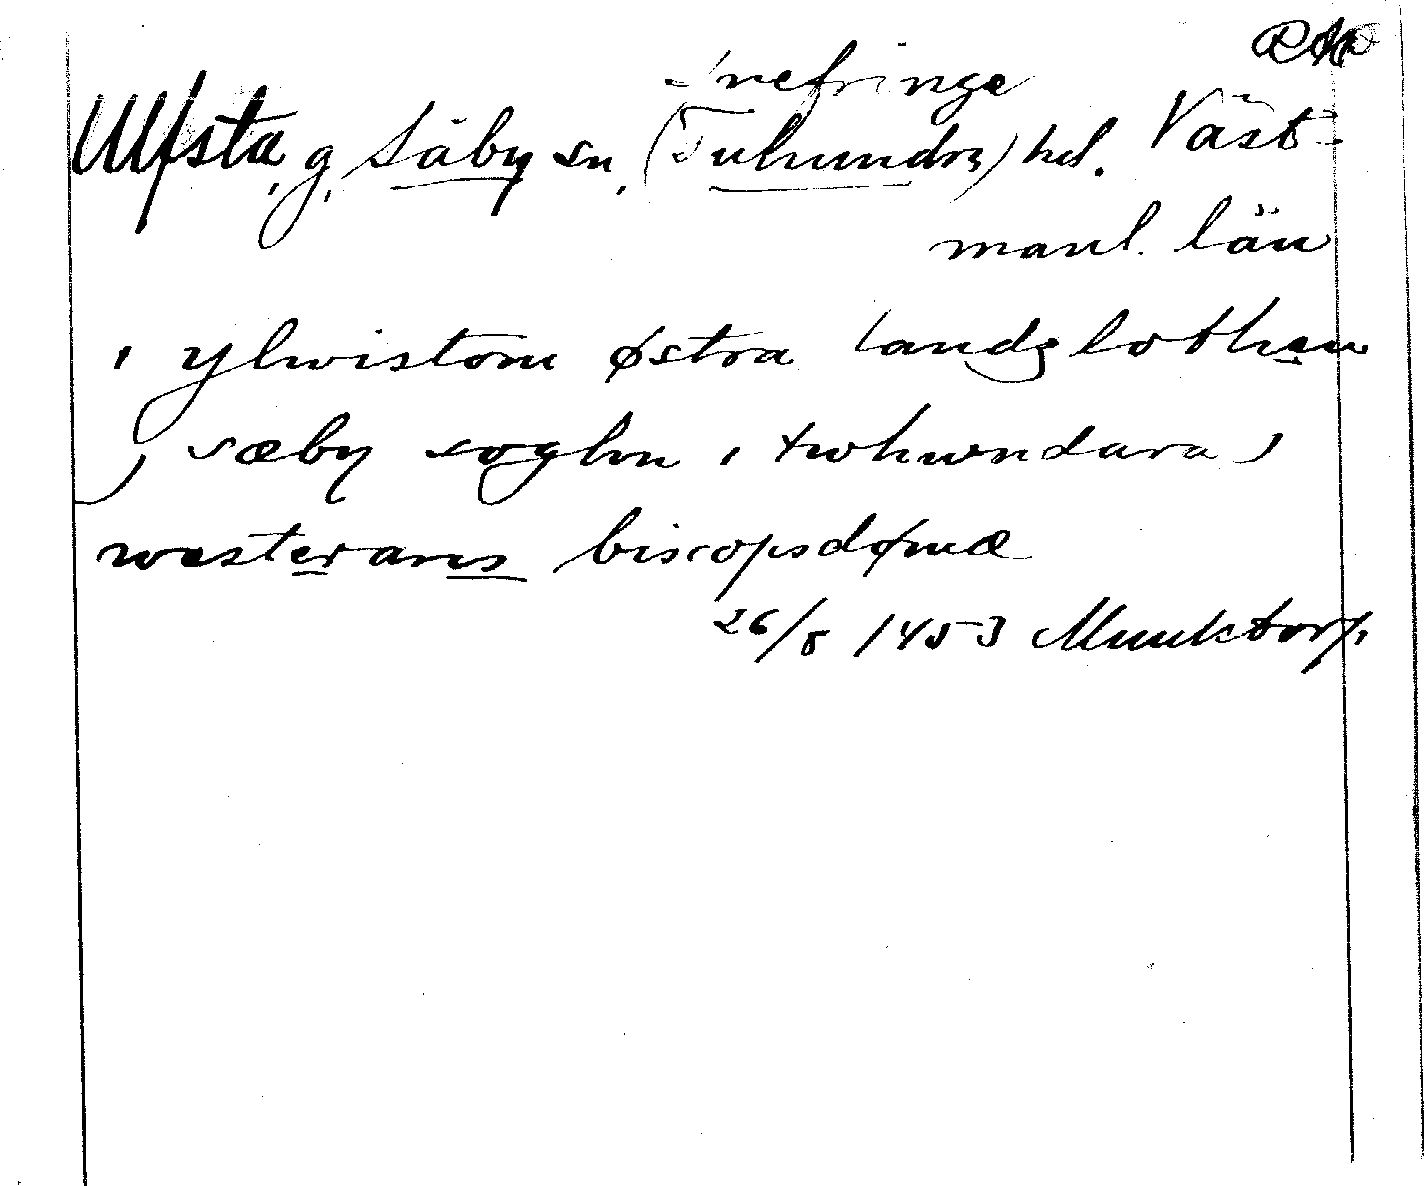 RAP
Snefringe
Ulfsta, g, Säby sn, (Tuhundra) hd. Väst-
manl. län
i ylwistom østra landzlothen
i sæby soghn i twhwndara i
westerars biscopsdømæ
26/8 1453 Munktorp